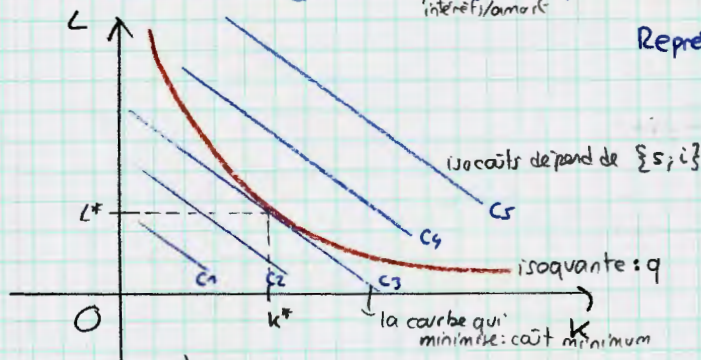 intérêts/amort
Repré
L
isocoûts dépend de {s; i}
L*
C5
C4
isoquante : q
C1
C2
C3
O
k*
K
la courbe qui
minimise : coût minimum